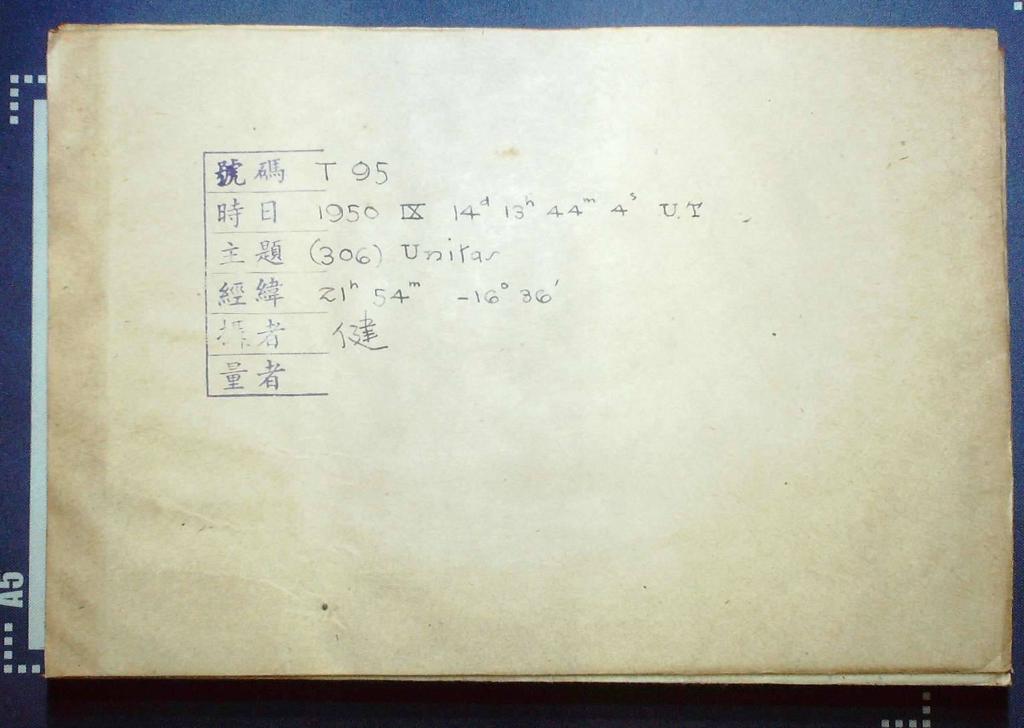 號碼 T 95
時日 1950 IX 14ᵈ 13ʰ 44ᵐ 4ˢ U.T
主題 (306) Unitas
經緯 21ʰ 54ᵐ -16° 36'
者 健
量者
A5